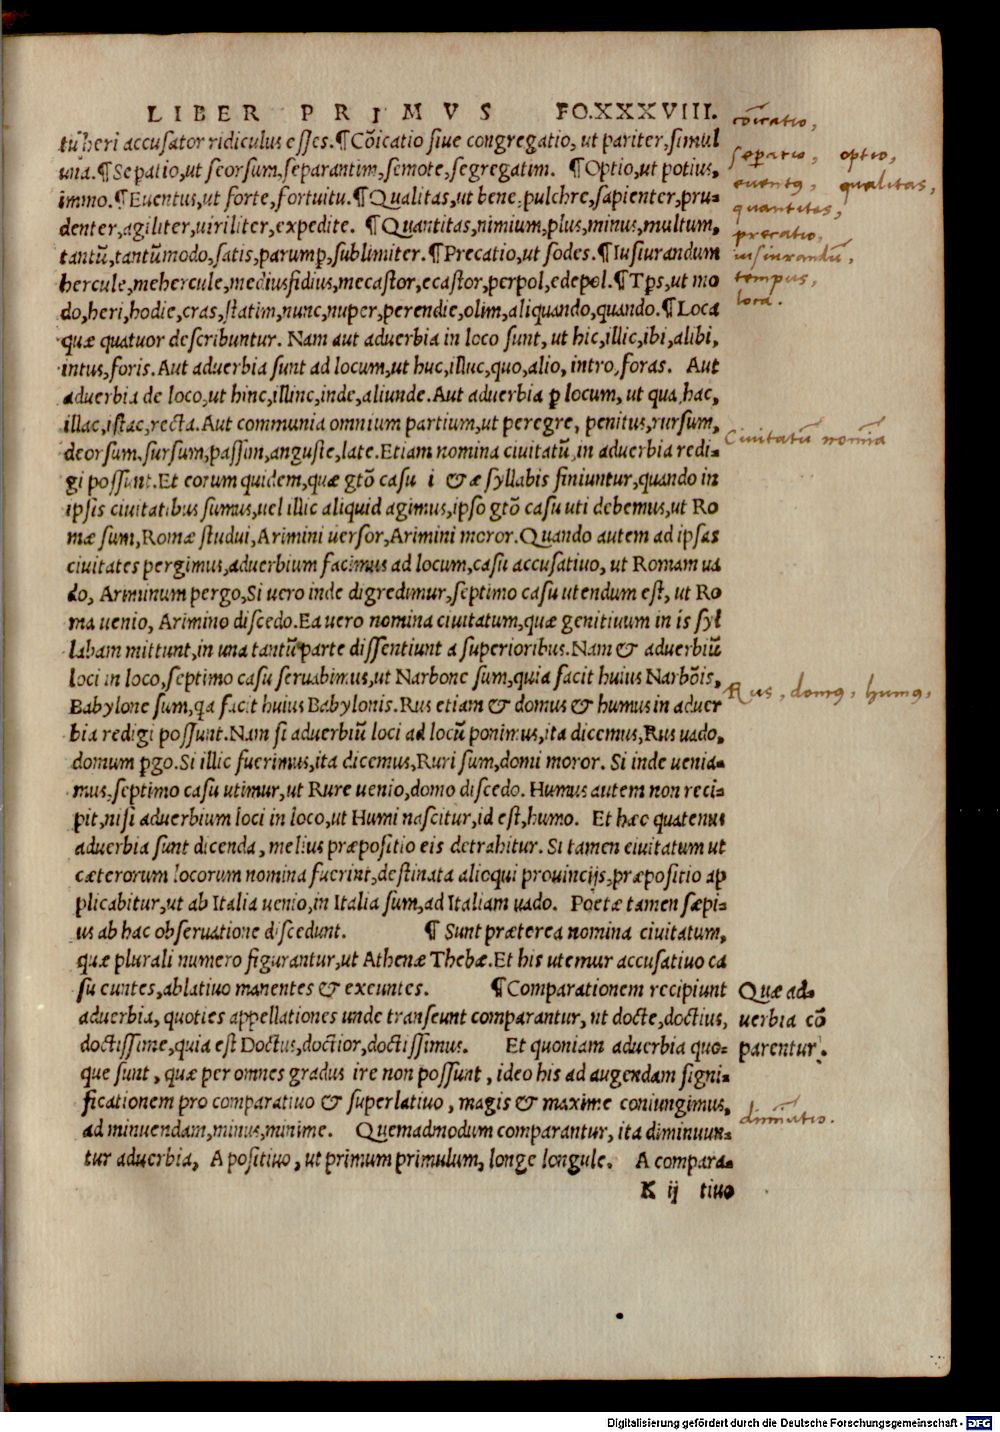 LIBER PRIMVS FO.XXXVIII.
heri accusator ridiculus esses.¶Cõicatio siue congregatio, ut pariter,simul
una.¶Sepatio,ut seorsum,separantim,semote,segregatim. ¶Optio,ut potius,
immo.¶Euentus,ut forte,fortuitu.¶Qualitas,ut bene,pulchre,sapienter,pru-
denter,agiliter,uiriliter,expedite. ¶Quantitas,nimium,plus,minus,multum,
tantũ,tantũmodo,satis,parump,sublimiter.¶Precatio,ut sodes.¶Iusiurandum
hercule,mehercule,mediusfidius,mecastor,ecastor,perpol,edepol.¶Tps,ut mo
do,heri,hodie,cras,statim,nunc,nuper,perendie,olim,aliquando,quando.¶Loca
quæ quatuor describuntur. Nam aut aduerbia in loco sunt, ut hic,illic,ibi,alibi,
intus,foris.Aut aduerbia sunt ad locum,ut huc,illuc,quo,alio,intro,foras. Aut
aduerbia de loco,ut hinc,illinc,inde,aliunde.Aut aduerbia ꝑ locum, ut qua,hac,
illac,istac,recta.Aut communia omnium partium,ut peregre, penitus,rursum,
deorsum,sursum,passim,anguste,late.Etiam nomina ciuitatũ in aduerbia redi-
gi possunt.Et eorum quidem,quæ gtõ casu i & æ syllabis finiuntur,quando in
ipsis ciuitatibus sumus,uel illic aliquid agimus,ipso gtõ casu uti debemus,ut Ro
mæ sum,Romæ studui,Arimini uersor,Arimini moror.Quando autem ad ipsas
ciuitates pergimus,aduerbium facimus ad locum,casu accusatiuo, ut Romam ua
do, Ariminum pergo,Si uero inde digredimur,septimo casu utendum est, ut Ro
ma uenio, Arimino discedo.Ea uero nomina ciuitatum,quæ genitiuum in is syl
labam mittunt,in una tantũ parte dissentiunt a superioribus.Nam & aduerbiũ
loci in loco,septimo casu seruabimus,ut Narbone sum,quia facit huius Narbõis,
Babylone sum,qa facit huius Babylonis.Rus etiam & domus & humus in aduer
bia redigi possunt.Nam si aduerbiũ loci ad locũ ponimus,ita dicemus,Rus uado,
domum pgo.Si illic fuerimus,ita dicemus,Ruri sum,domi moror. Si inde uenia-
mus,septimo casu utimur,ut Rure uenio,domo discedo. Humus autem non reci-
pit,nisi aduerbium loci in loco,ut Humi nascitur,id est,humo. Et hæc quatenus
aduerbia sunt dicenda, melius præpositio eis detrahitur. Si tamen ciuitatum ut
cæterorum locorum nomina fuerint,destinata alioqui prouincijs,præpositio ap
plicabitur,ut ab Italia uenio,in Italia sum,ad Italiam uado. Poetæ tamen sæpi-
us ab hac obseruatione discedunt. ¶Sunt præterea nomina ciuitatum,
quæ plurali numero figurantur,ut Athenæ Thebæ.Et his utemur accusatiuo ca
su euntes,ablatiuo manentes & exeuntes. ¶Comparationem recipiunt
aduerbia, quoties appellationes unde transeunt comparantur, ut docte,doctius,
doctissime,quia est Doctus,doctior,doctissimus. Et quoniam aduerbia quo-
que sunt, quæ per omnes gradus ire non possunt, ideo his ad augendam signi-
ficationem pro comparatiuo & superlatiuo, magis & maxime coniungimus,
ad minuendam,minus,minime. Quemadmodum comparantur, ita diminuun-
tur aduerbia, A positiuo, ut primum primulum, longe longule. A compara-
K ij tiuo
cõicatio,
sepatio, optio,
euentus, qualitas,
quantitas,
precatio,
iusiurandũ,
tempus,
loca.
Ciuitatũ nomĩa
Rus, domus, humus,
Quæ ad-
uerbia cõ
parentur.
dimĩutio.
Digitalisierung gefördert durch die Deutsche Forschungsgemeinschaft - DFG